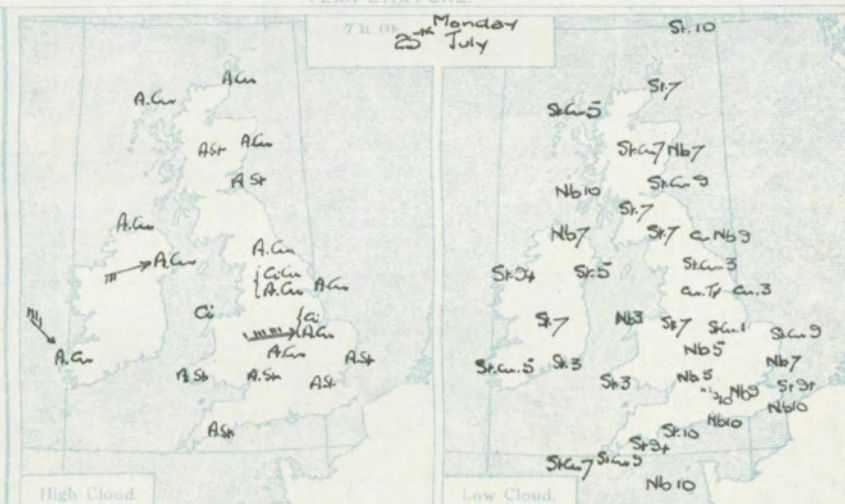 TEMPERATURE.
7h. OF
Monday
25th July
A.Cu
A.Cu
A.St
A.Cu
A.St
A.Cu
A.Cu
A.Cu
Ci.Cu
A.Cu
A.Cu
Ci
Ci
A.Cu
A.Cu
A.Cu
A.St
A.St
A.St
A.St
A.St
High Cloud.
St.10
St.7
St.Cu.5
St.Cu7
Nb7
St.Cu9
Nb10
St.7
Nb7
St.7
Cu.Nb9
St.Cu.3
St.9+
St.5
Cu.Tr
Cu.3
St.7
Nb3
St.7
St.Cu.1
St.Cu9
Nb5
St.Cu.5
St.3
Nb7
St.3
Nb.5
Nb9
St9+
Nb10
Nb10
St.10
St9+
St.Cu7
St.Cu9
Nb10
Low Cloud.